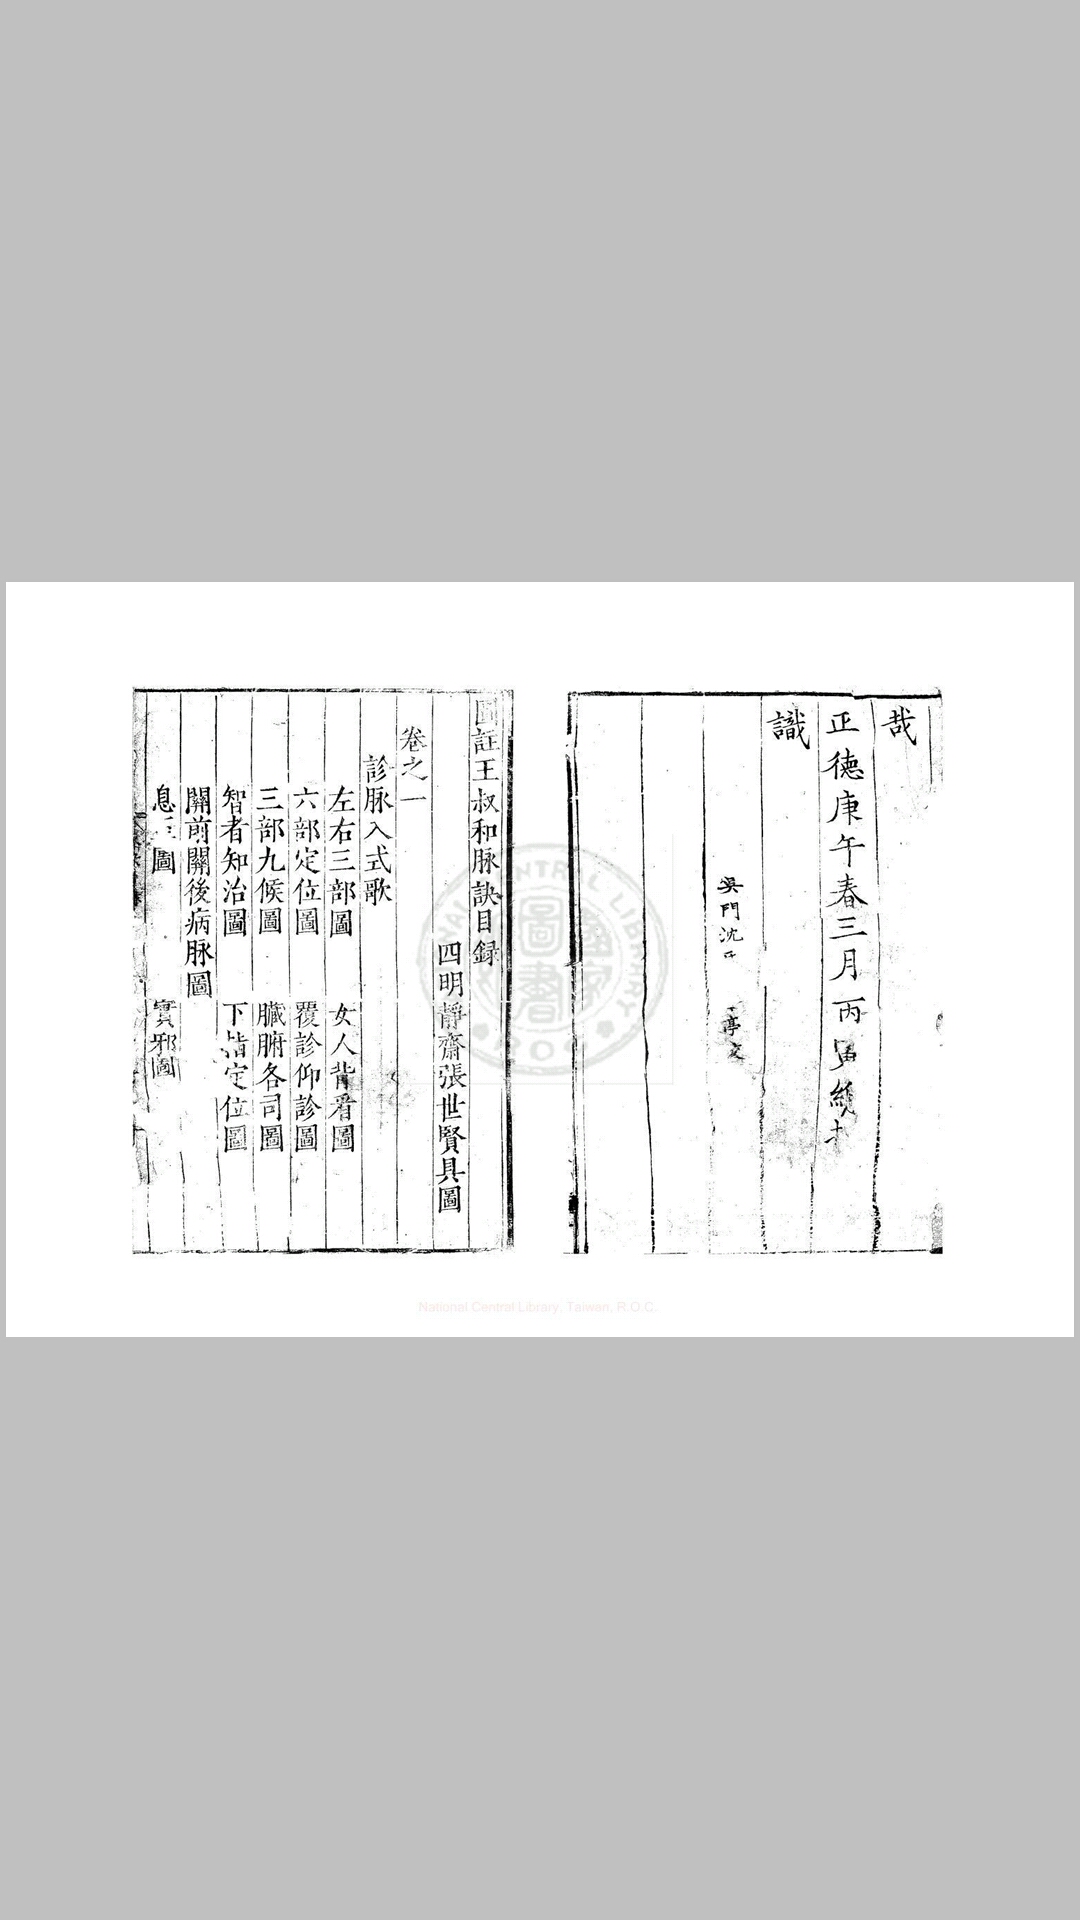 哉
正德庚午春三月丙寅
識
吳門沈
亭文
圖註王叔和脉訣目録
四明靜齋張世賢具圖
卷之一
診脉入式歌
左右三部圖 女人背看圖
六部定位圖 覆診仰診圖
三部九候圖 臓腑各司圖
智者知治圖 下指定位圖
關前關後病脉圖
息 圖 實邪圖
NATIONAL CENTRAL LIBRARY
R.O.C.
國家圖書館
National Central Library, Taiwan, R.O.C.